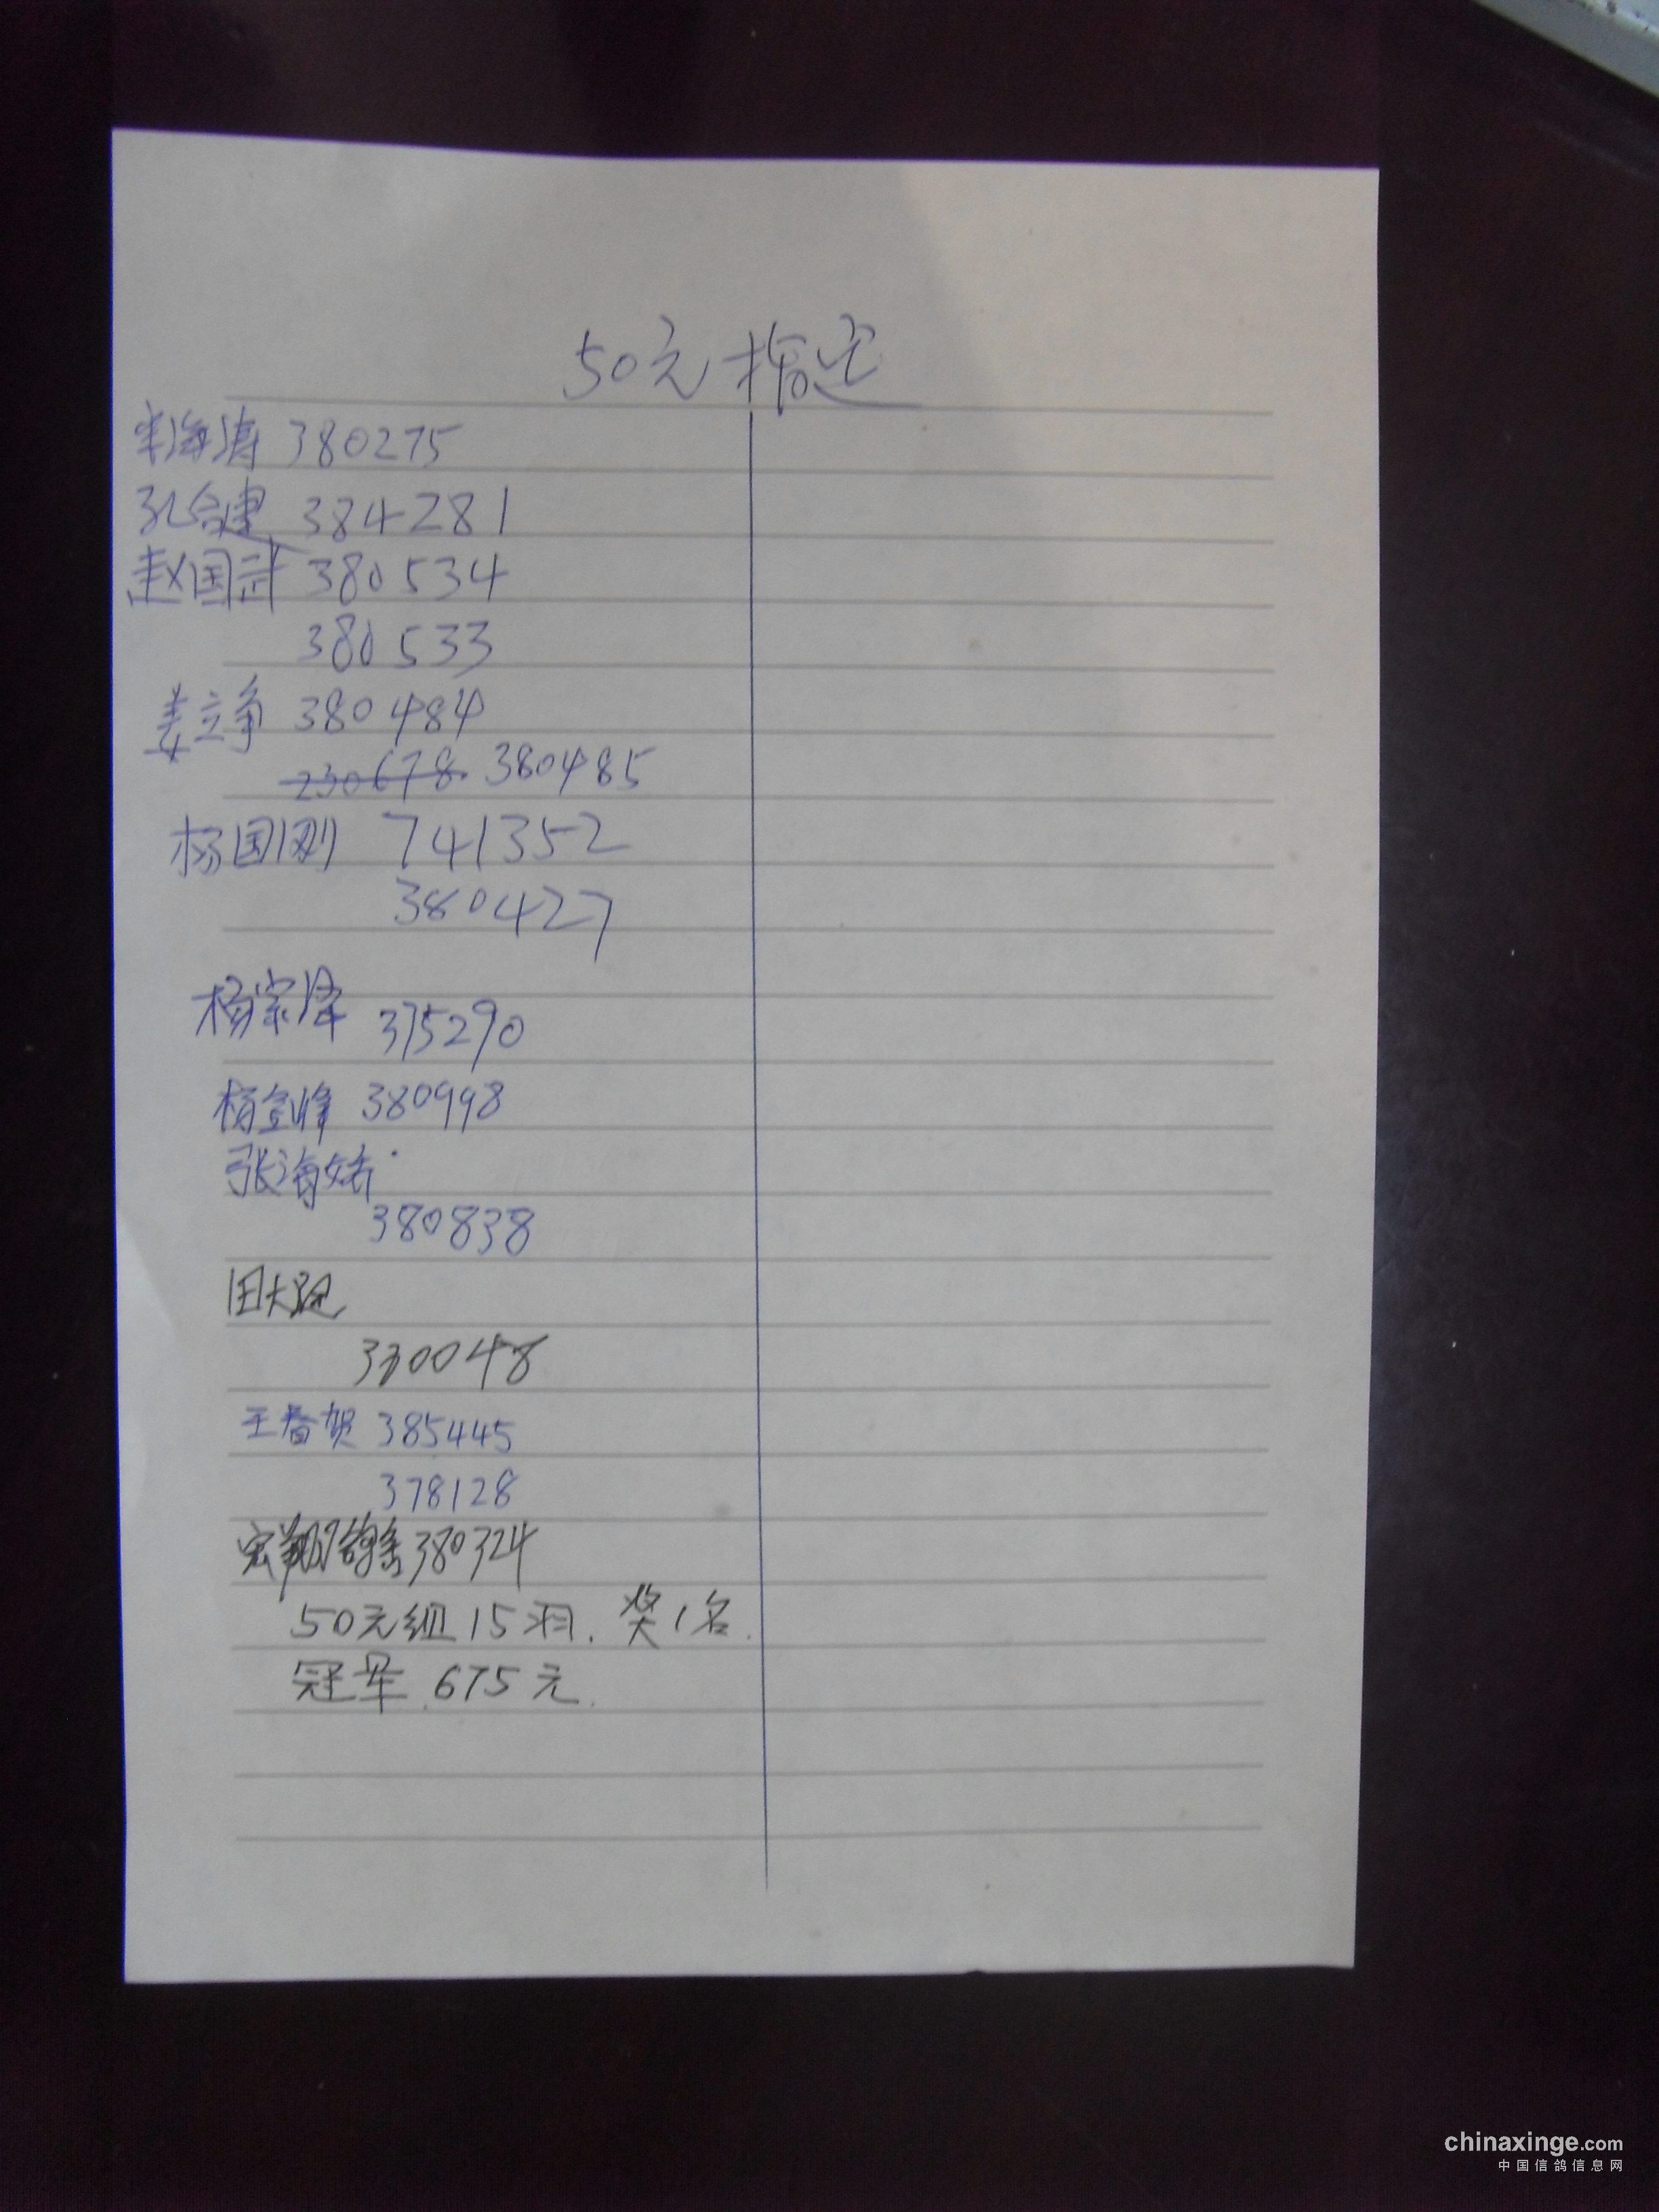 50元指定
宋海涛 380275
孔令建 384281
赵国武 380534
380533
姜立争 380484
230678 380485
杨国刚 741352
380427
杨宗泽 375290
杨金峰 380998
张海
380838
田大
330048
王春贺 385445
378128
宏翔鸽舍 380324
50元组 15羽. 奖1名.
冠军 675元.
chinaxinge.com
中国信鸽信息网